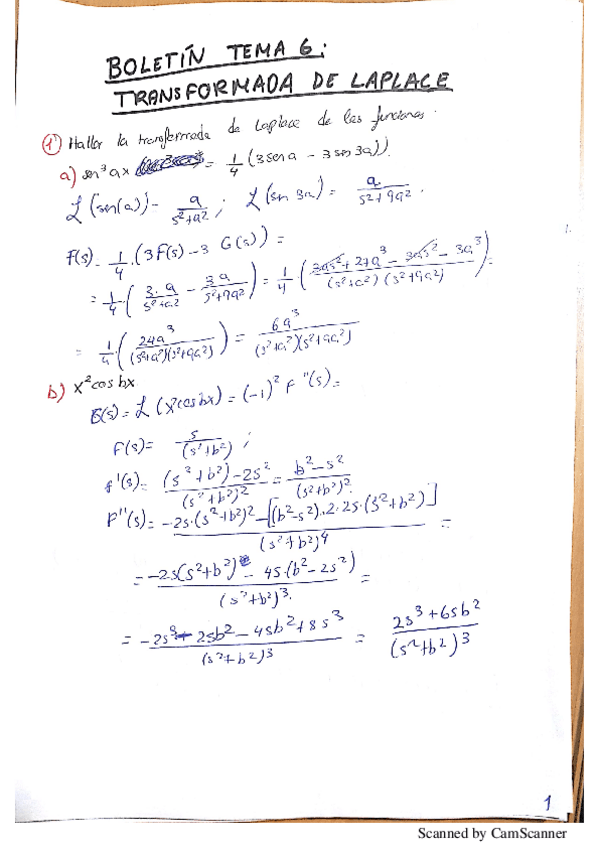 BOLETÍN TEMA 6:
TRANSFORMADA DE LAPLACE
1) Hallar la transformada de Laplace de las funciones:
a) sen³ax = 1/4 (3sen a - 3sn 3a)).
ℒ(sen(a)) = a/(s²+a²) ; ℒ(sn 3a) = a/(s²+9a²).
F(s) = 1/4 · (3F(s) - 3 G(s)) =
= 1/4 · (3·a/(s²+a²) - 3a/(s²+9a²)) = 1/4 · ((3as² + 27a³ - 3as² - 3a³)/((s²+a²)(s²+9a²))) =
= 1/4 · (24a³/((s²+a²)(s²+9a²))) = 6a³/((s²+a²)(s²+9a²))
b) x²cos bx
G(s) = ℒ(x²cos bx) = (-1)² F''(s) =
F(s) = s/(s²+b²) ;
f'(s) = ((s²+b²) - 2s²)/(s²+b²)² = (b²-s²)/(s²+b²)².
F''(s) = (-2s·(s²+b²)² - [(b²-s²)·2·2s·(s²+b²)])/(s²+b²)⁴ =
= (-2s(s²+b²) - 4s·(b²-2s²))/(s²+b²)³ =
= (-2s³ - 2sb² - 4sb² + 8s³)/(s²+b²)³ = (2s³+6sb²)/(s²+b²)³
1
Scanned by CamScanner